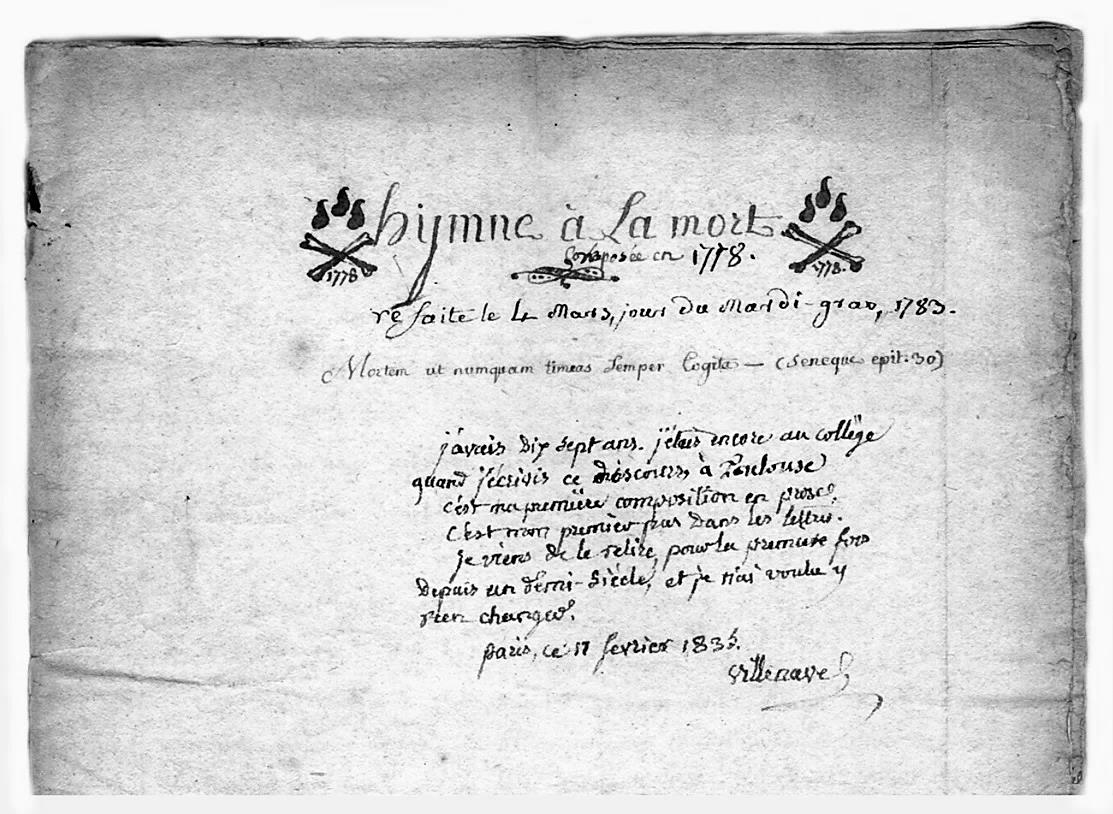 hymne à La mort
1778
1778.
Composée en 1778.
refaite le 4 Mars, jour du Mardi-gras, 1783.
Mortem ut numquam timeas semper Cogita — (Seneque epit. 30)
j'avais dix sept ans. j'étais encore au collège
quand j'écrivis ce discours, à Toulouse
c'est ma première composition en prose.
C'est mon premier pas dans les lettres.
je viens de le relire, pour la première fois
depuis un demi-Siècle, et je n'ai voulu y
rien changer.
paris, ce 17 fevrier 1835.
Villenave